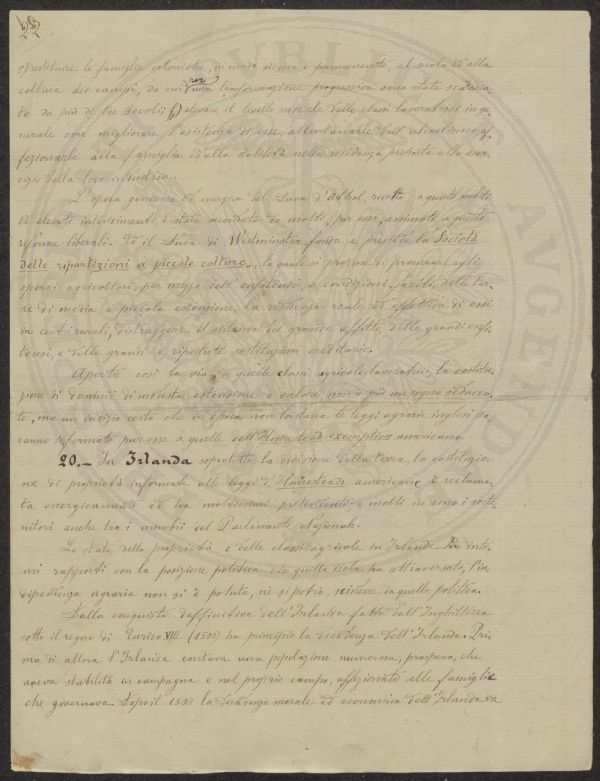 22
c) restituire le famiglie coloniche, in modo sicuro e permanente, al suolo ed alla
coltura dei campi, da cui per una trasformazione progressiva sono state scaccia-
te da più di tre secoli; d) elevare il livello morale delle classi lavoratrici in ge-
nerale con migliorare l'esistenza di esse, allontanarle dall'alcoolismo, af-
fezionarle alla famiglia ed alla stabilità nella residenza prescelta allo eser-
cizio della loro industria.
L'opera generosa ed energica del Duca d'Athol, rivolta a questi nobili
ed elevati intendimenti, è stata secondata da molti, pur essi, animati a queste
riforme liberali. Ed il Duca di Westminster fonda e presiede la Società
delle ripartizioni a piccole colture, la quale si propone di procurare agli
operai agricoltori, per mezzo dell'enfiteusi, a condizioni facili, delle ter-
re di media e piccola estensione, la residenza reale ed effettiva di essi
in centri rurali, distruggere il sistema dei grandi affitti, delle grandi enfi-
teusi, e delle grandi e ripetute sostituzioni ereditarie.
Aperta così la via a quelle classi agricole lavoratrici, la costitu-
zione di dominii di modesta estensione e valore non è più un sogno seducen-
te, ma un indizio certo che in epoca non lontana le leggi agrarie inglesi sa-
ranno informate pur esse a quelle dell'Homestead exemption americano.
20.– In Irlanda sopratutto la divisione della terra, la costituzio-
ne di proprietà informate alle leggi d'Homesteads americane è reclama-
ta energicamente ed ha moltissimi pretendenti e molti ne sono i soste-
nitori anche tra i membri del Parlamento Nazionale.
Lo stato della proprietà e delle classi agricole in Irlanda ha inti-
mi rapporti con la posizione politica che quella isola ha attraversato, l'in-
dipendenza agraria non si è potuta, nè si potrà, scindere da quella politica.
Dalla conquista deffinitiva dell'Irlanda fatta dall'Inghilterra
sotto il regno di Enrico VIII (1500) ha principio la decadenza dell'Irlanda. Pri-
ma di allora l'Irlanda contava una popolazione numerosa, prospera, che
aveva stabilità in campagna e nel proprio campo, affezionata alle famiglie
che governava. Dopo il 1500 la decadenza morale ed economica dell'Irlanda va